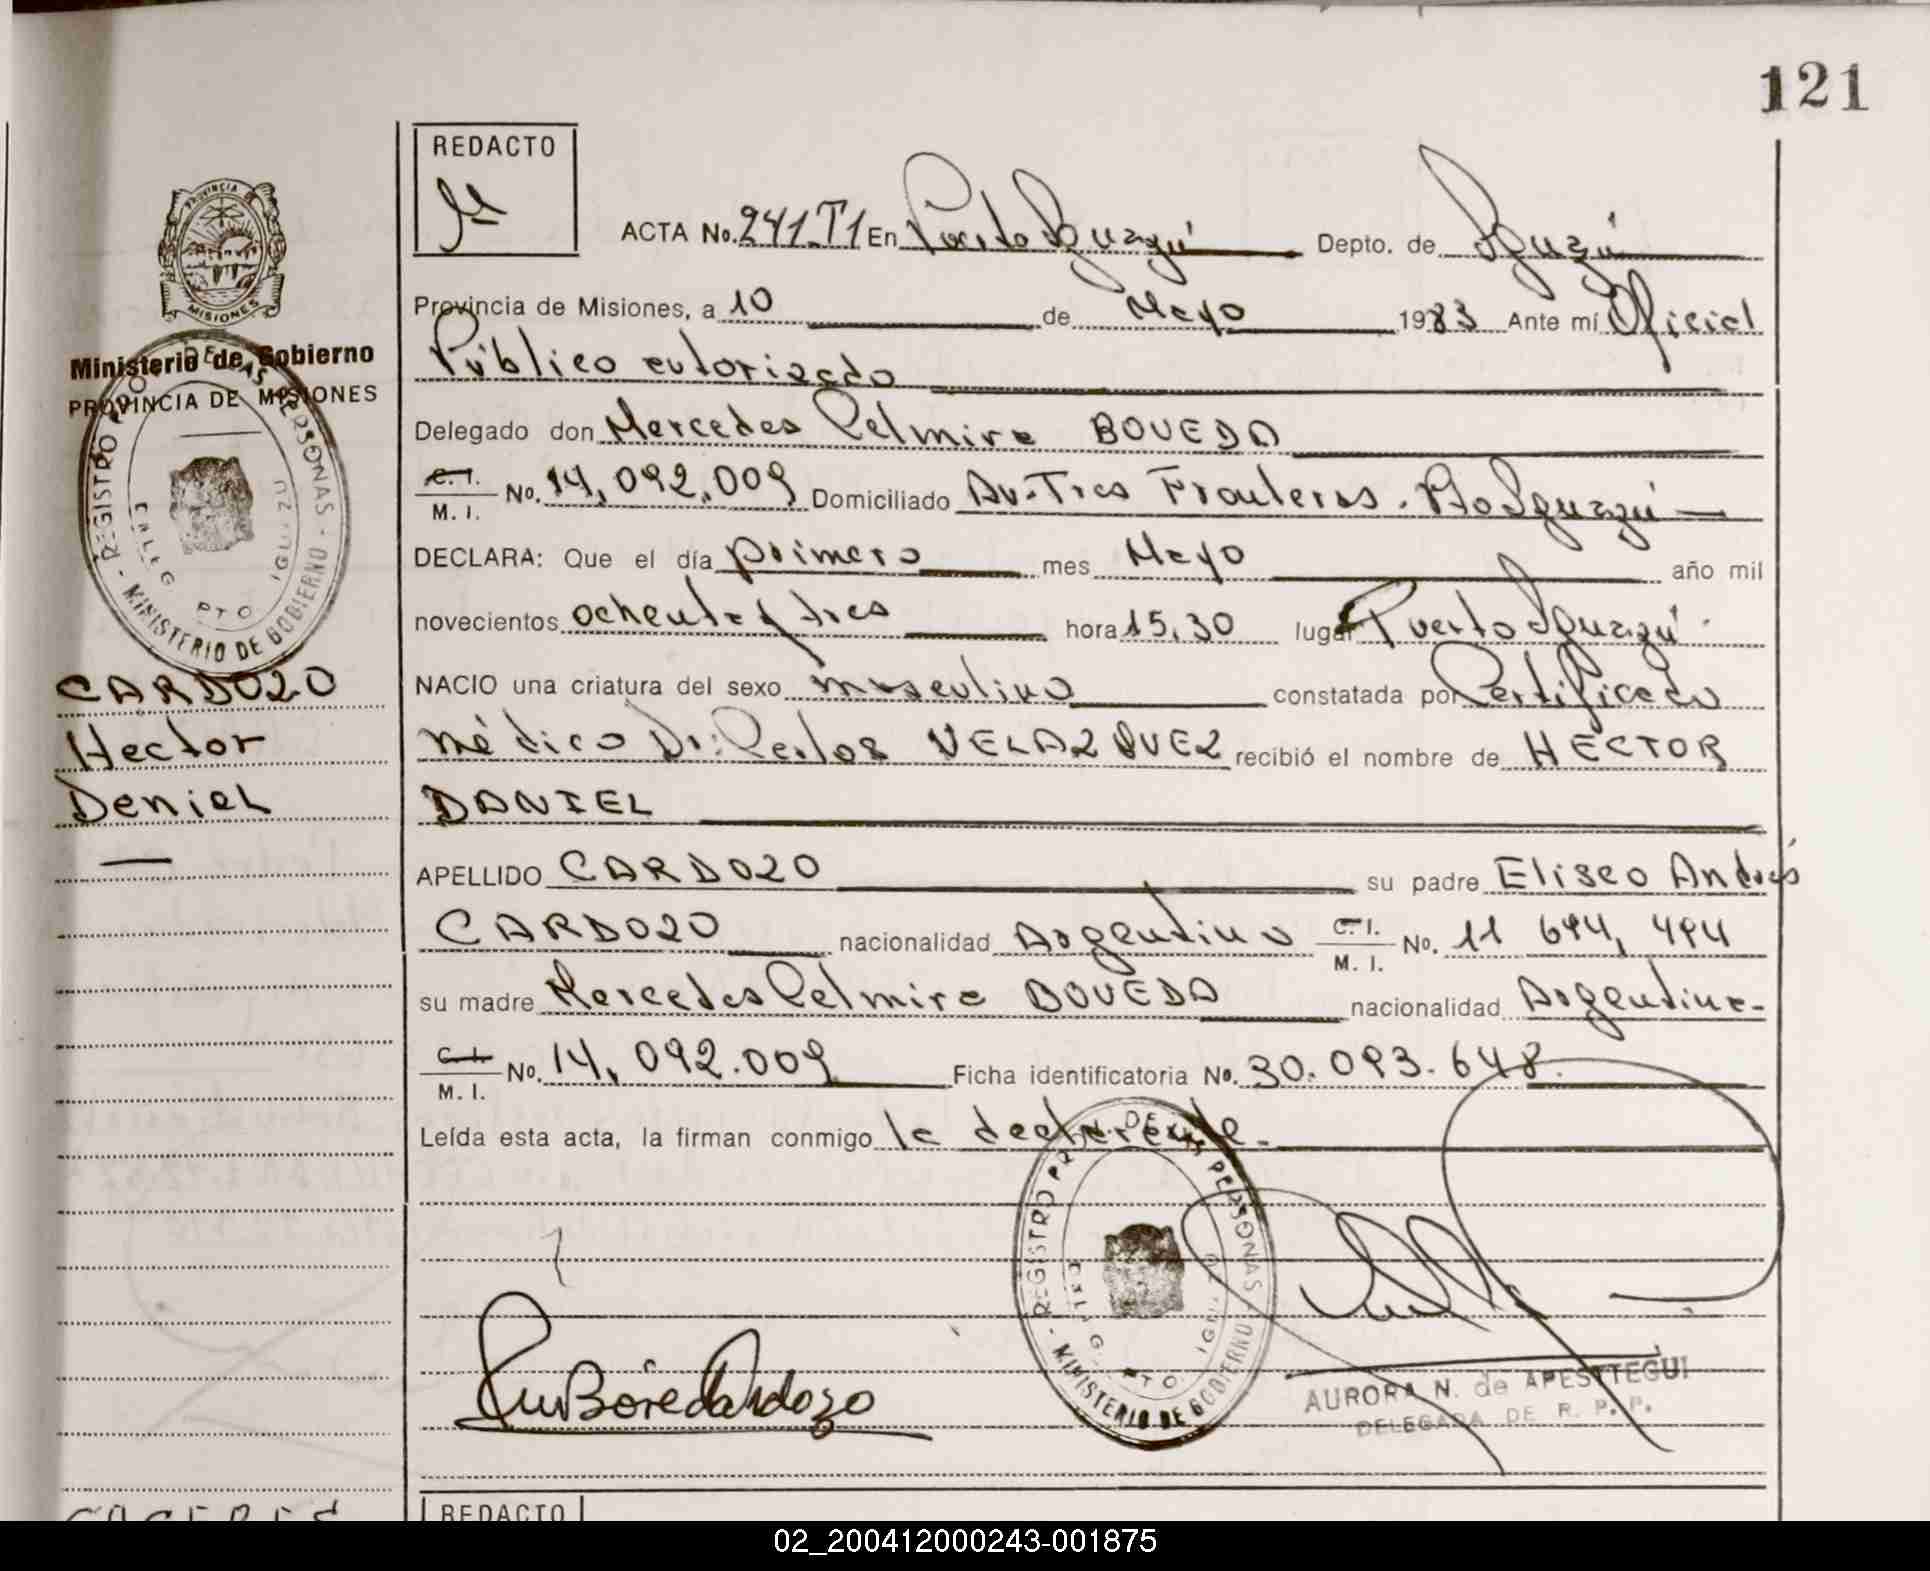 121
REDACTO
PROVINCIA DE
MISIONES
ACTA No. 241. T1 En Puerto Iguazú Depto. de Iguazú
Provincia de Misiones, a 10 de Mayo 1983 Ante mí Oficial
Ministerio de Gobierno
PROVINCIA DE MISIONES
Público autorizado
Delegado don Mercedes Celmira BOVEDA
C. I.
M. I.
No. 14,092.009 Domiciliado Av. Tres Fronteras. Pto Iguazú
DECLARA: Que el día primero mes Mayo año mil
novecientos ochenta y tres hora 15,30 lugar Puerto Iguazú.
REGISTRO PROV. DE LAS PERSONAS - MINISTERIO DE GOBIERNO -
PTO IGUAZU
CARDOZO
Hector
Daniel
NACIO una criatura del sexo masculino constatada por Certificado
médico Dr: Carlos VELAZQUEZ recibió el nombre de HECTOR
DANIEL
APELLIDO CARDOZO su padre Eliseo Andrés
CARDOZO nacionalidad Argentino C. I.
M. I.
No. 11 694, 494
su madre Mercedes Celmira BOVEDA nacionalidad Argentina-
C. I.
M. I.
No. 14, 092.009 Ficha identificatoria No. 30.093.648.
Leída esta acta, la firman conmigo la declarante.
REGISTRO PROV. DE LAS PERSONAS - MINISTERIO DE GOBIERNO -
PTO IGUAZU
AURORA N. de APESTTEGUI
DELEGADA DE R. P. P.
REDACTO
02_200412000243-001875